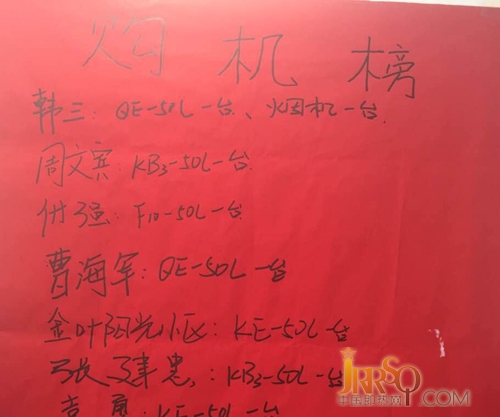 购机榜
韩三: QE-50L一台、烟机一台
周文宾: KB3-50L一台
付强: F10-50L一台
曹海军: QE-50L一台
金叶阳光小区: KE-50L一台
张建忠: KB3-50L一台
KE-50L一台
JRRSQ.COM
中国即热网